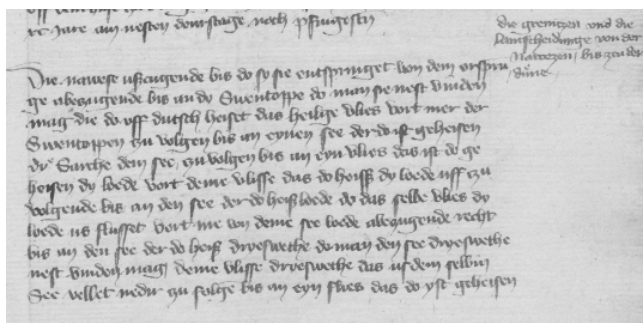 re Jare am nesten donrstage noch pfingesten
die grenitzen und die
lantscheidunge von der
nawezen, bis zcu der
dune
Die nawese uffczugende bis do so sie entspringet von dem orspru
ge abeczugende bis an do Swentoppe do man sie nest vinden
mag die do uff dutsch heiset das heilige vlies vort mer der
Swentoppen zu volgen bis an eynen see der do ist geheisen
Sarthe dem see, zu volgen bis an eyn vlies das ist do ge
heisen dy loede vort deme vlisse das do heist dy loede uff zu
volgende bis an den see der do heist loede do das selbe vlies dy
loede us flusset vort me von deme see loede abeczugende recht
bis an den see der do heist dryeswethe do man den see dryeswethe
nest vinden mag deme vlisse dryeswethe das us dem selbin
See vellet nedir zu folge bis an eyn flies das do yst geheisen